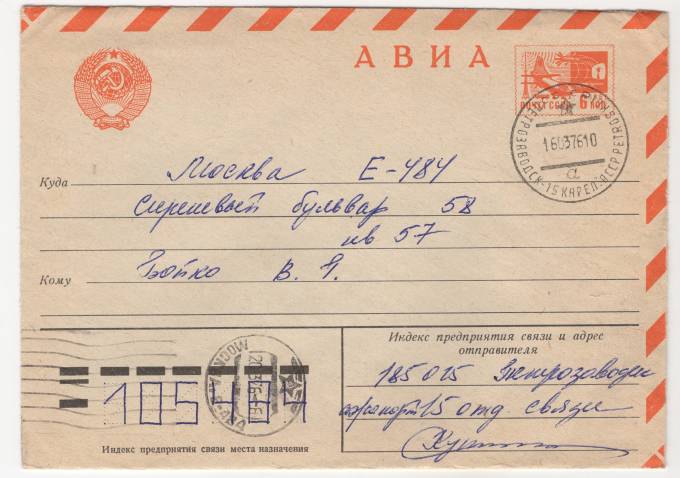 АВИА
ПОЧТА СССР 6 КОП
ПЕТРОЗАВОДСК-15 КАРЕЛ. АССР PETROZAVODSK
16037610
а
Куда Москва Е-484
Сиреневый бульвар 58
кв 57
Кому Бойко В. Я.
МОСКВА
Индекс предприятия связи и адрес
отправителя
185015 Петрозаводск
аэропорт 15 отд связи
105484
Индекс предприятия связи места назначения